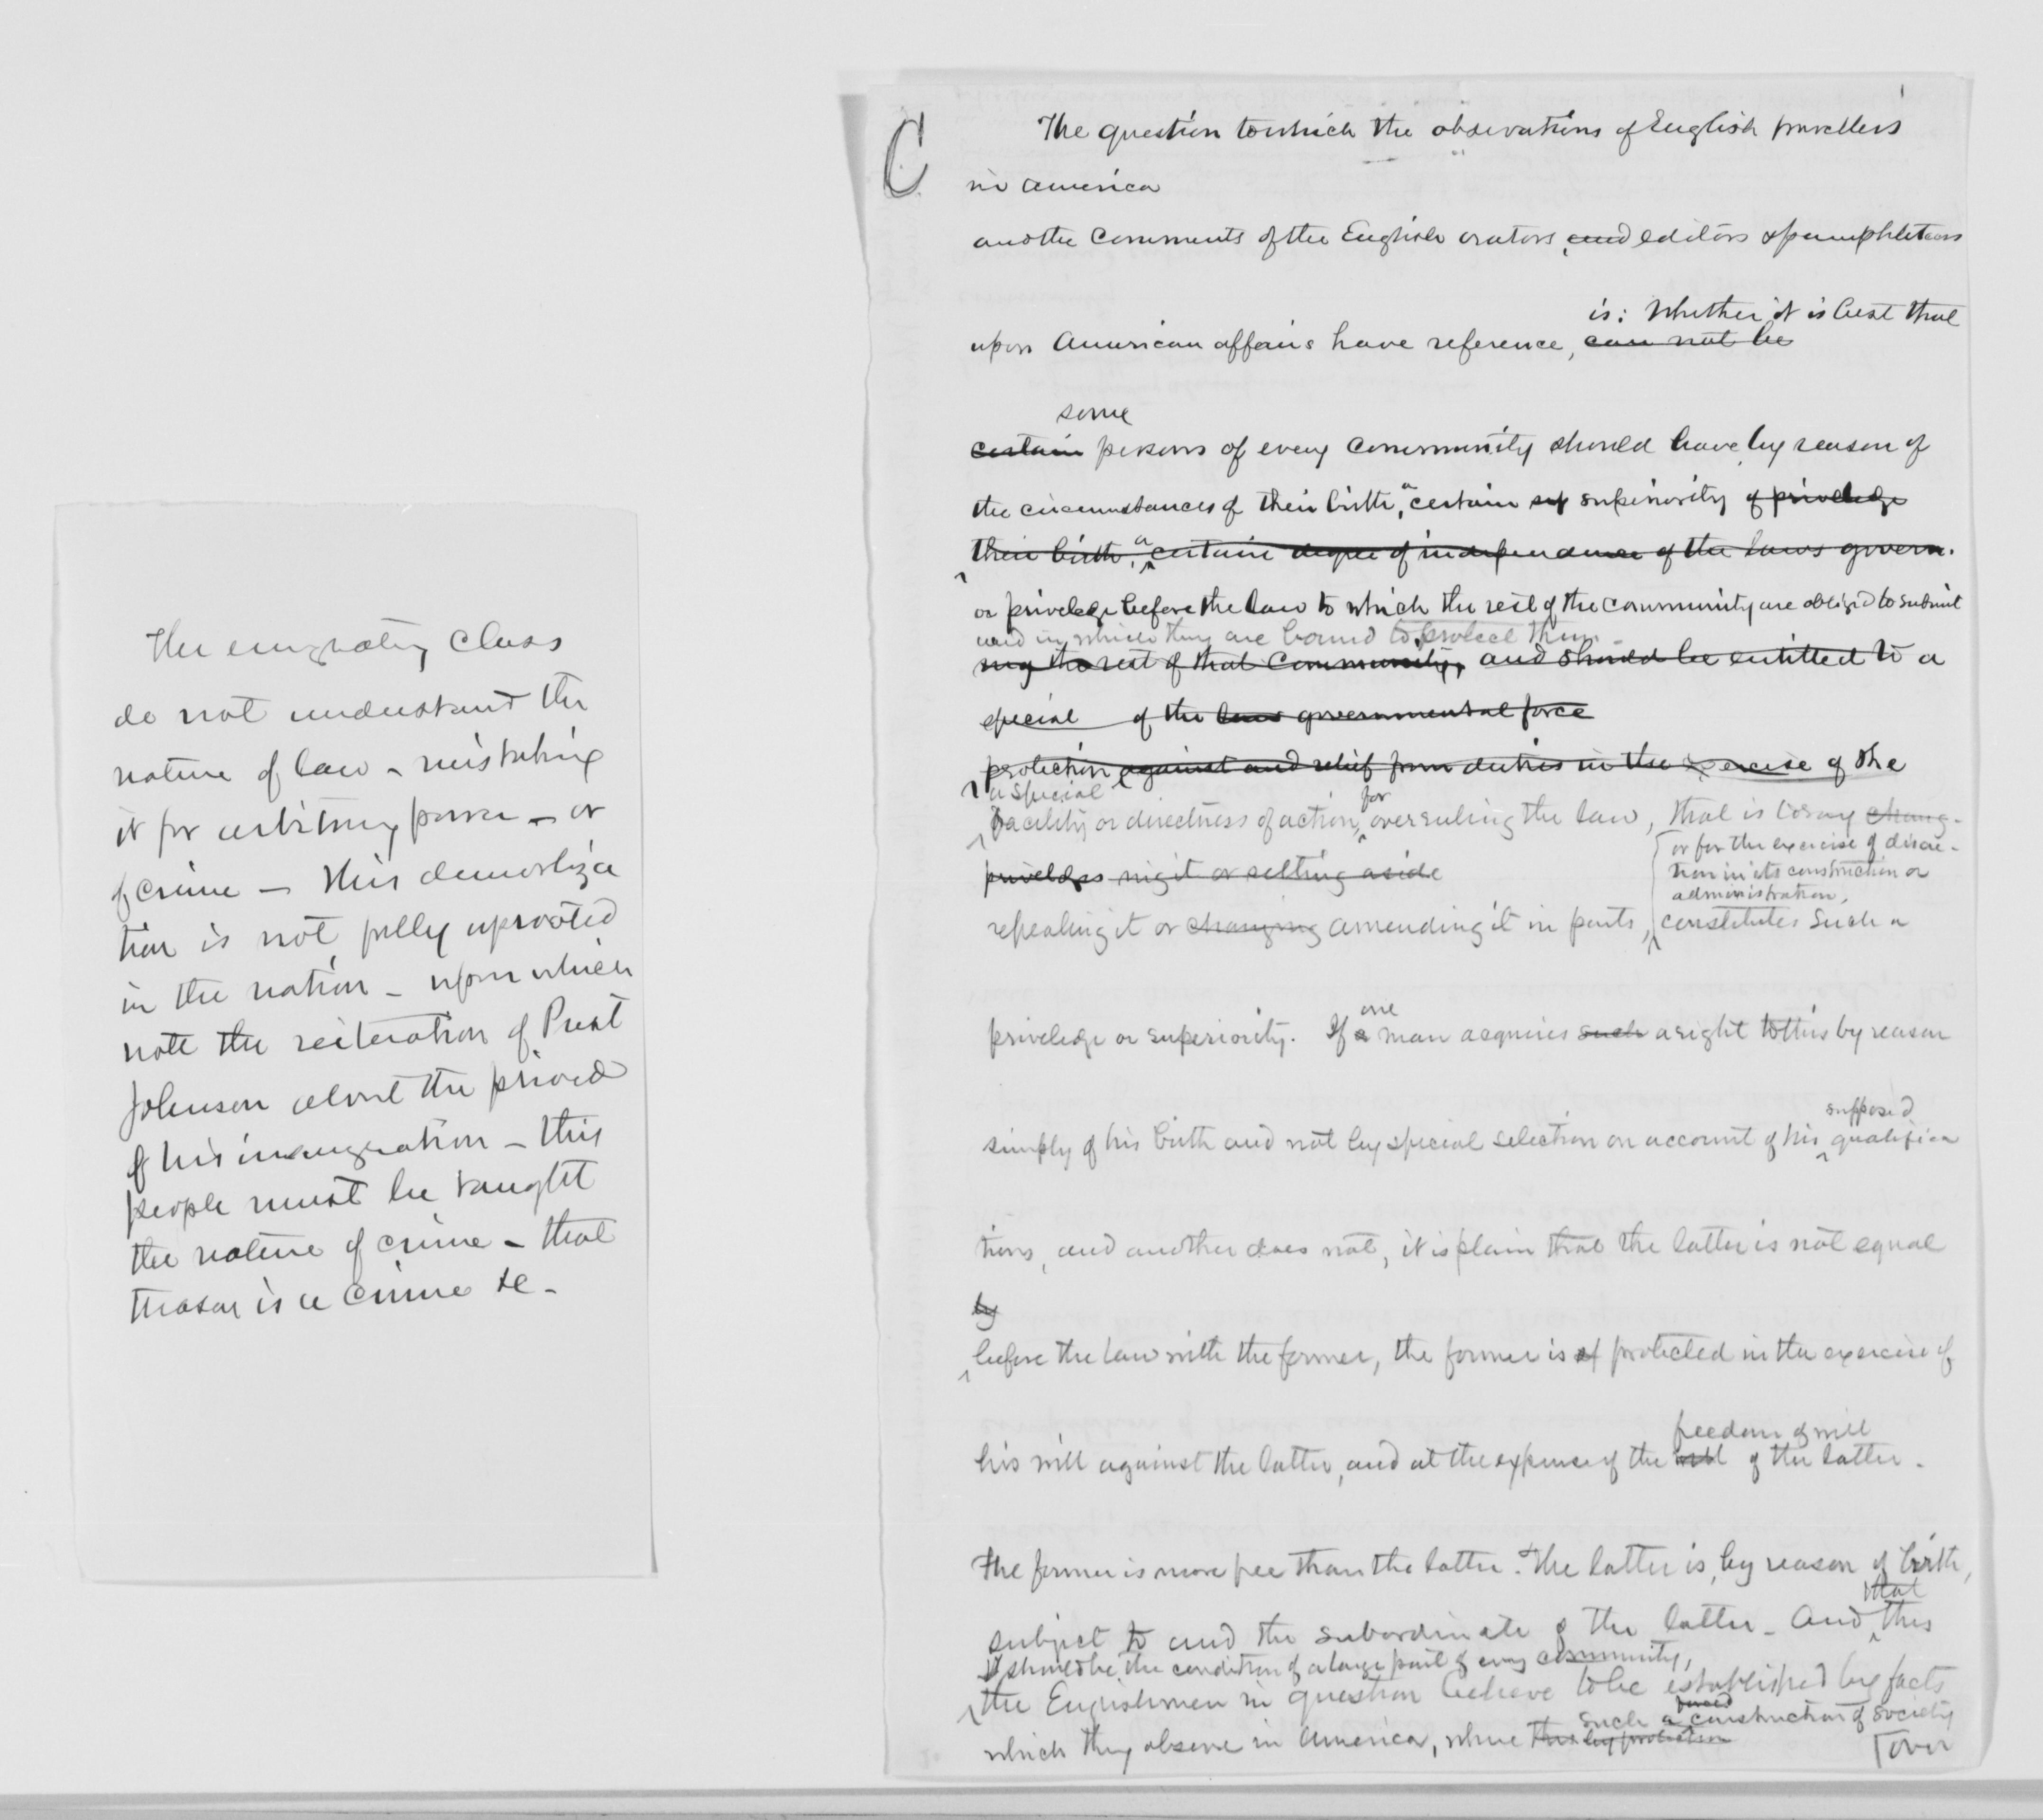 The emigrating class
do not understand the
nature of law - mistaking
it for arbitrary power - or
of crime - This demoraliza
tion is not fully uprooted
in the nation - upon which
note the reiteration of Prest
Johnson about the period
of his inauguration - this
people must be taught
the nature of crime - that
treason is a crime &c -
C
The question to which the observations of English travellers
in America
and the comments of the English orators, and editors & pamphleteers
is: Whether it is best that
upon American affairs have reference, can not be
some
certain persons of every community should have by reason of
the circumstances of their birth, a certain superiority of privelege
their birth, a certain degree of independence of the laws govern-
or privelege before the law to which the rest of the community are obliged to submit
and in which they are bound to protect them -
ing the rest of that community, and should be entitled to a
special of the laws governmental force
protection against and relief from duties in the exercise of the
a special
facility or directness of action, for overruling the law, that is to say chang-
or for the exercise of discre-
tion in its construction or
administration,
priveleges ing it or setting aside
repealing it or changing amending it in parts, constitutes such a
one
privelege or superiority. If a man acquires such a right to this by reason
supposed
simply of his birth and not by special selection on account of his qualifica
tions, and another does not, it is plain that the latter is not equal
by
before the law with the former, the former is protected in the exercise of
freedom of will
his will against the latter, and at the expense of the will of the latter.
The former is more free than the latter. & The latter is, by reason of birth,
that
subject to and the subordinate of the latter - And this
should be the condition of a large part of every community,
the Englishmen in question believe to be established by facts
forced
such a construction of society
which they observe in America, where this by protection
[over